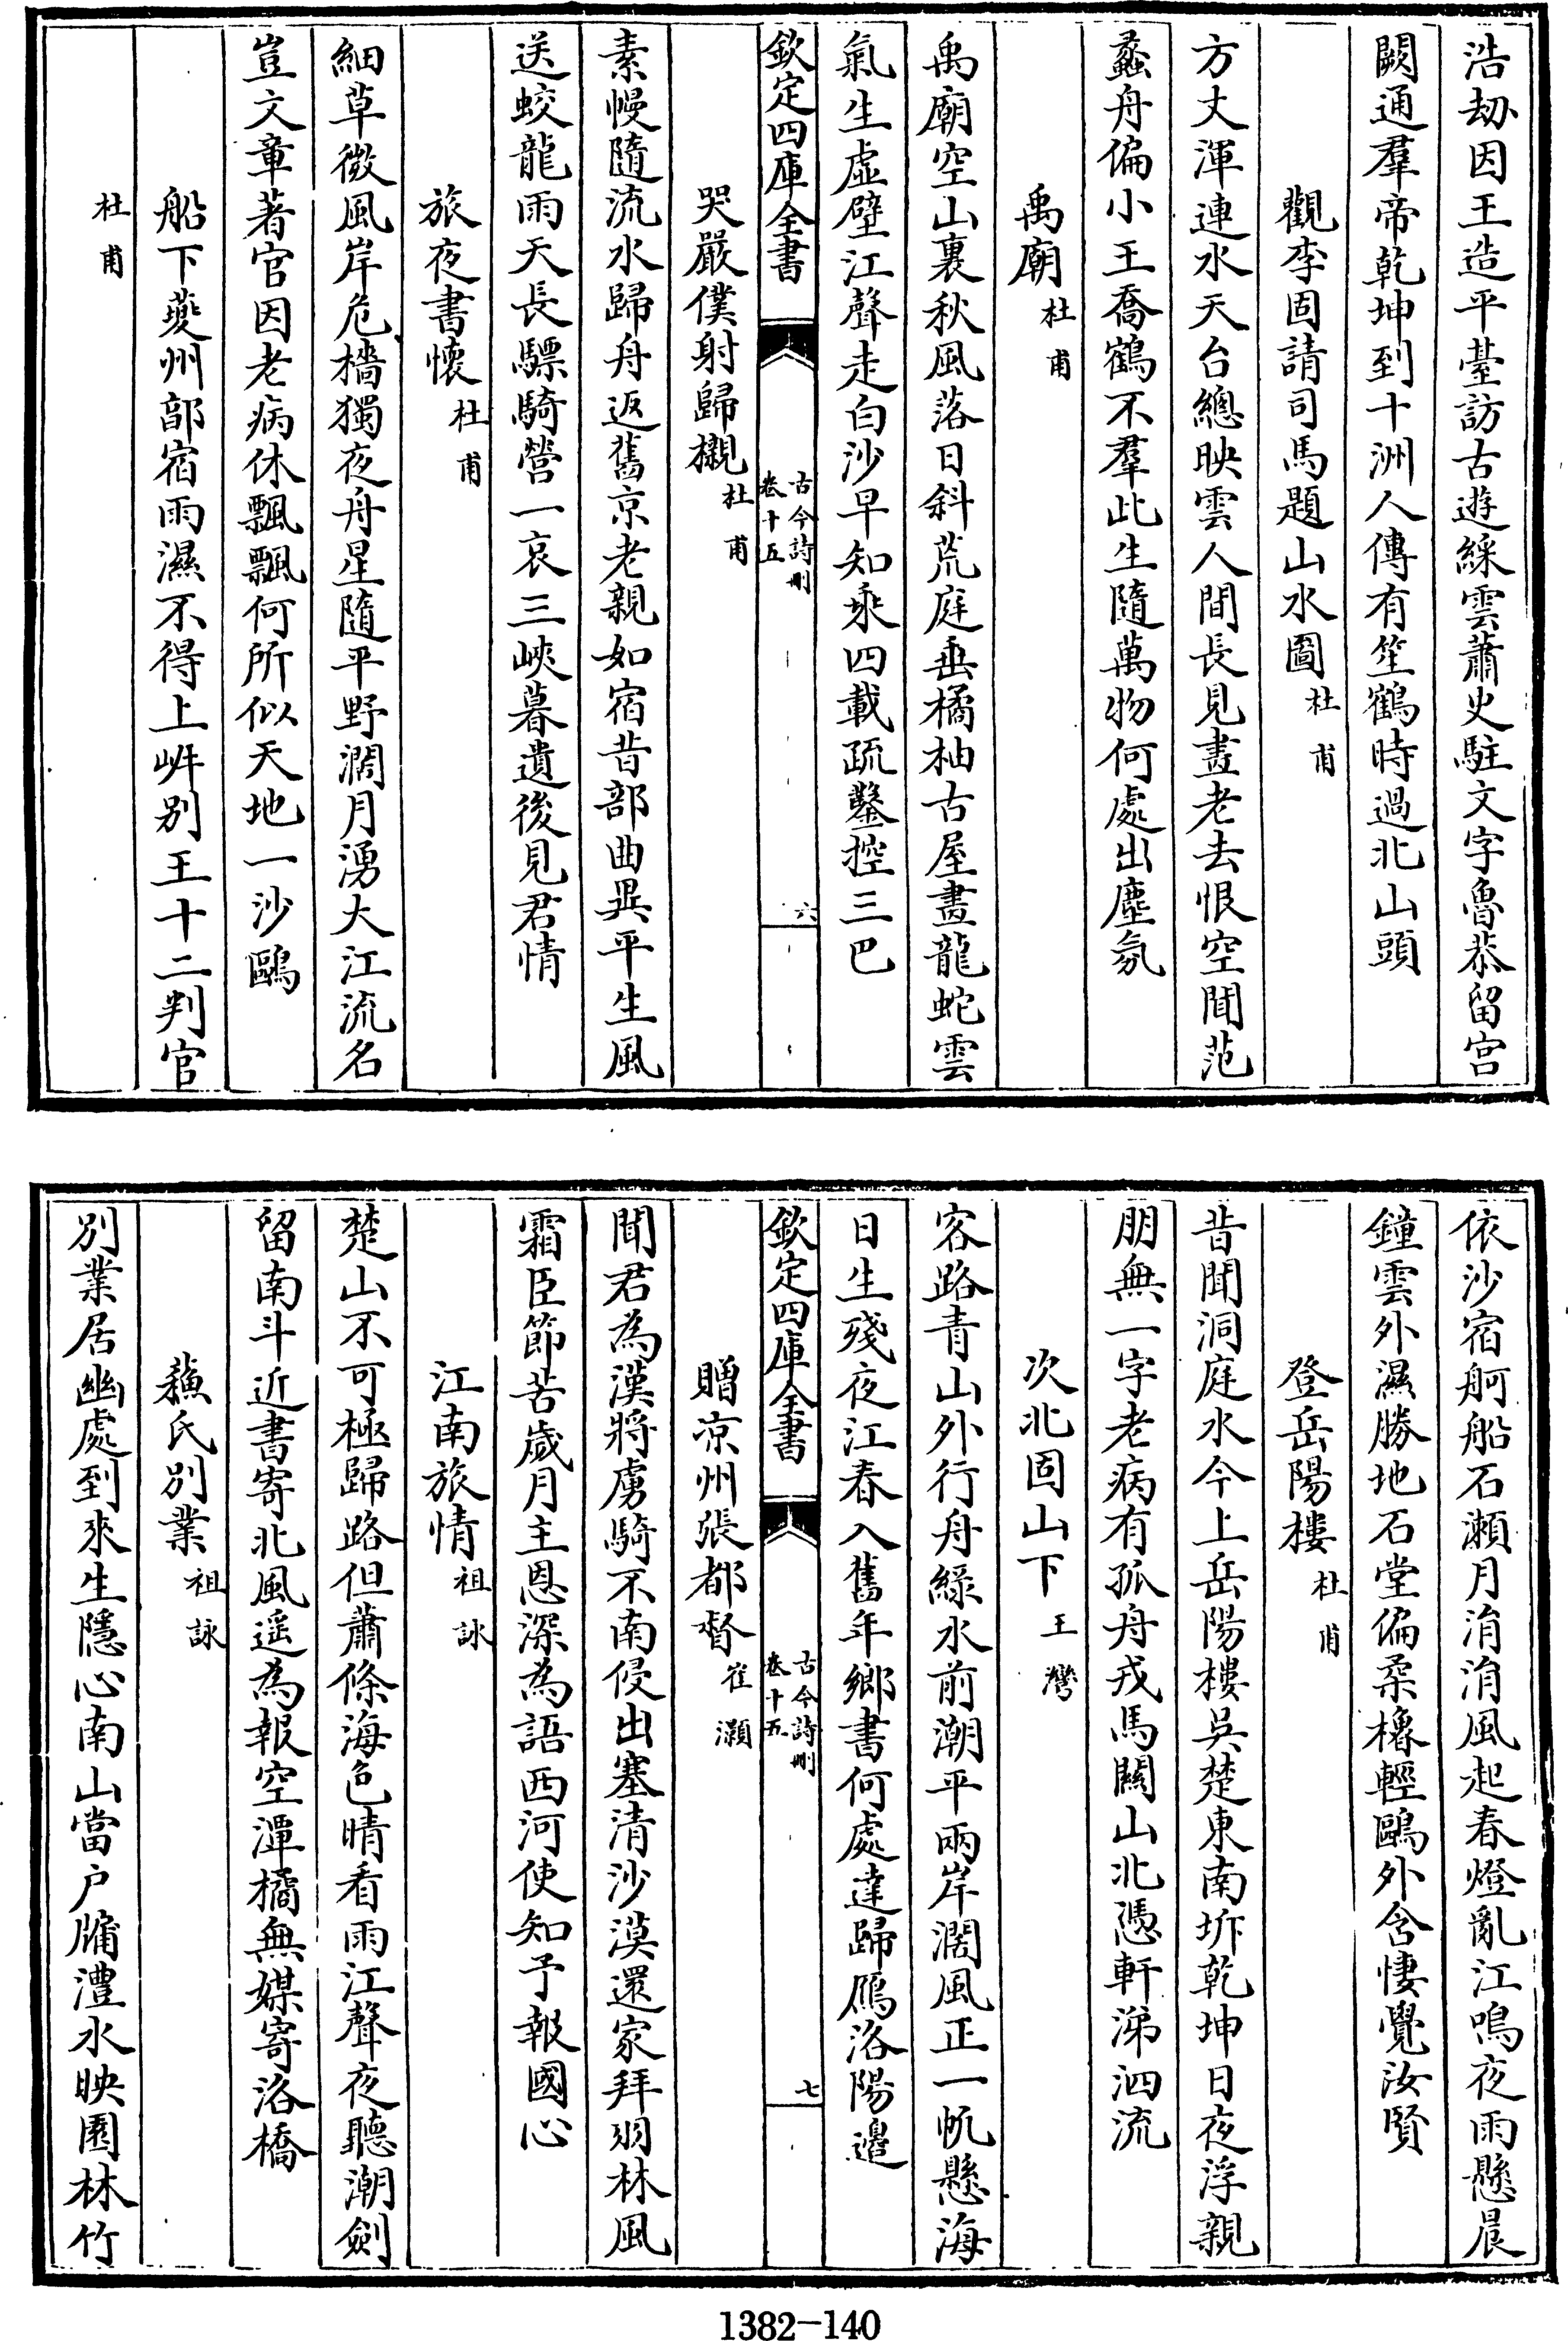 浩劫因王造平臺訪古遊綵雲蕭史駐文字魯恭留宫
闕通羣帝乾坤到十洲人傳有笙鶴時過北山頭
觀李固請司馬題山水圖杜甫
方丈渾連水天台總映雲人間長見畫老去恨空聞范
蠡舟偏小王喬鶴不羣此生隨萬物何處出塵氛
禹廟杜甫
禹廟空山裏秋風落日斜荒庭垂橘柚古屋畫龍蛇雲
氣生虚壁江聲走白沙早知乘四載疏鑿控三巴
欽定四庫全書
古今詩刪
卷十五
六
哭嚴僕射歸櫬杜甫
素幔隨流水歸舟返舊京老親如宿昔部曲異平生風
送蛟龍雨天長驃騎營一哀三峽暮遺後見君情
旅夜書懷杜甫
細草微風岸危檣獨夜舟星隨平野濶月湧大江流名
豈文章著官因老病休飄飄何所似天地一沙鷗
船下夔州郭宿雨濕不得上岸别王十二判官
杜甫
依沙宿舸船石瀬月涓涓風起春燈亂江鳴夜雨懸晨
鐘雲外濕勝地石堂偏柔櫓輕鷗外含悽覺汝賢
登岳陽樓杜甫
昔聞洞庭水今上岳陽樓吳楚東南坼乾坤日夜浮親
朋無一字老病有孤舟戎馬關山北憑軒涕泗流
次北固山下王灣
客路青山外行舟緑水前潮平兩岸濶風正一帆懸海
日生殘夜江春入舊年鄉書何處達歸鴈洛陽邉
欽定四庫全書
古今詩刪
卷十五
七
贈凉州張都督崔灝
聞君為漢將虜騎不南侵出塞清沙漠還家拜羽林風
霜臣節苦歲月主恩深為語西河使知予報國心
江南旅情祖詠
楚山不可極歸路但蕭條海色晴看雨江聲夜聽潮劍
留南斗近書寄北風遥為報空潭橘無媒寄洛橋
蘓氏别業祖詠
别業居幽處到來生隱心南山當户牖澧水映園林竹
1382-140